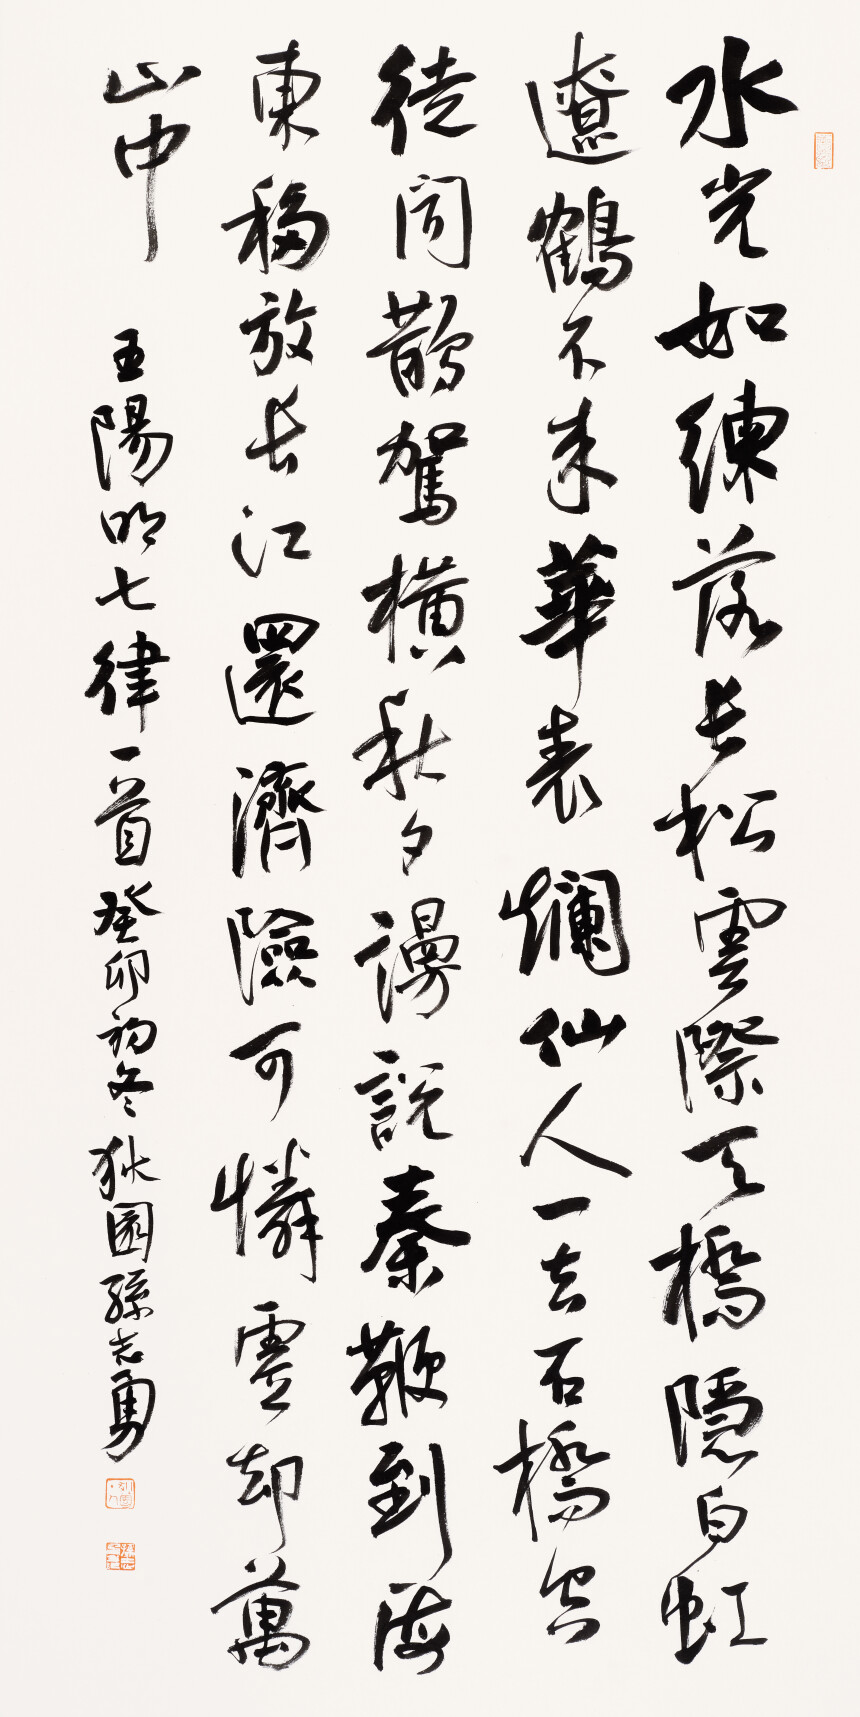 水光如練落長松雲際天橋隱白虹
遼鶴不來華表爛仙人一去石橋空
徒聞鵲駕橫秋夕謾說秦鞭到海
東移放長江還濟險可憐虛却萬
山中 王陽明七律一首癸卯初冬狄園孫志勇